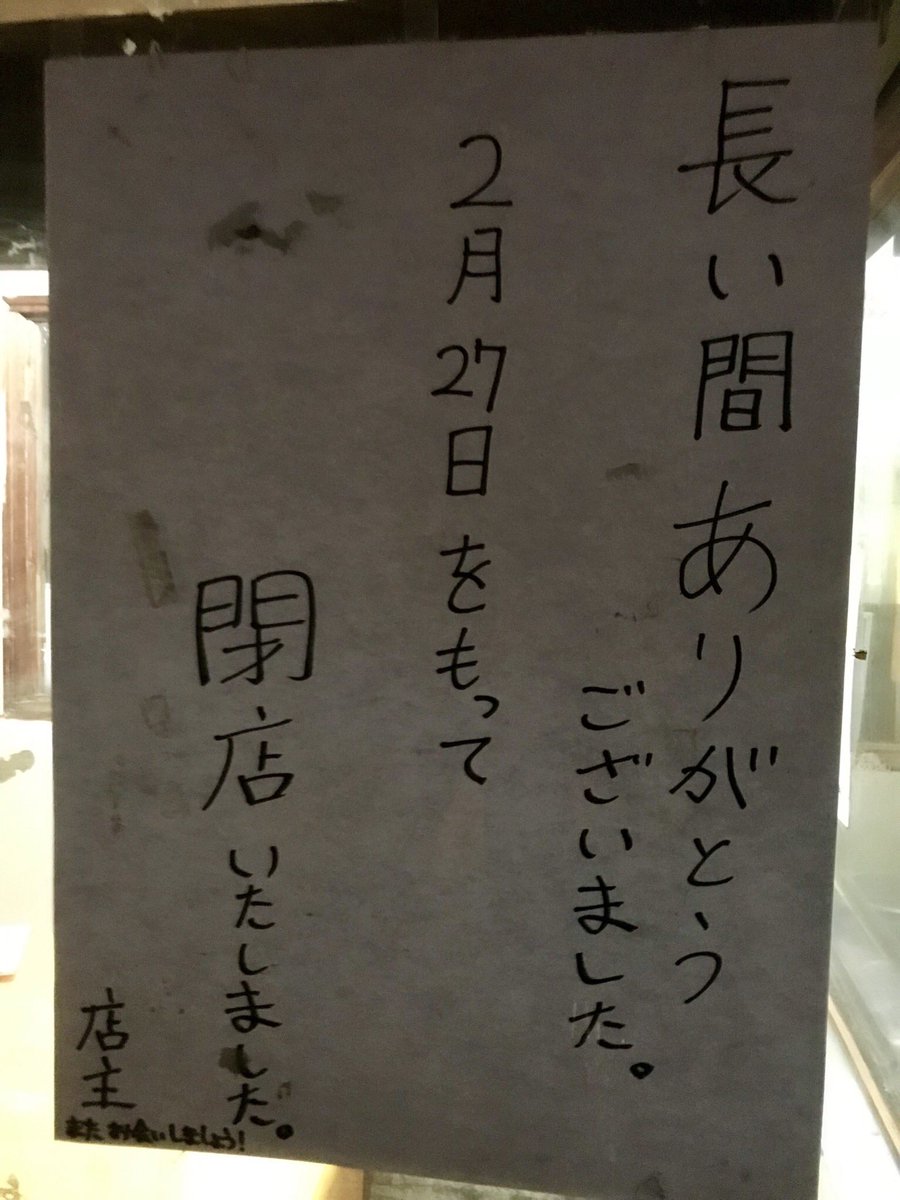 長い間ありがとう
ございました。
2月27日をもって
閉店いたしました。
店主
またお会いしましょう!